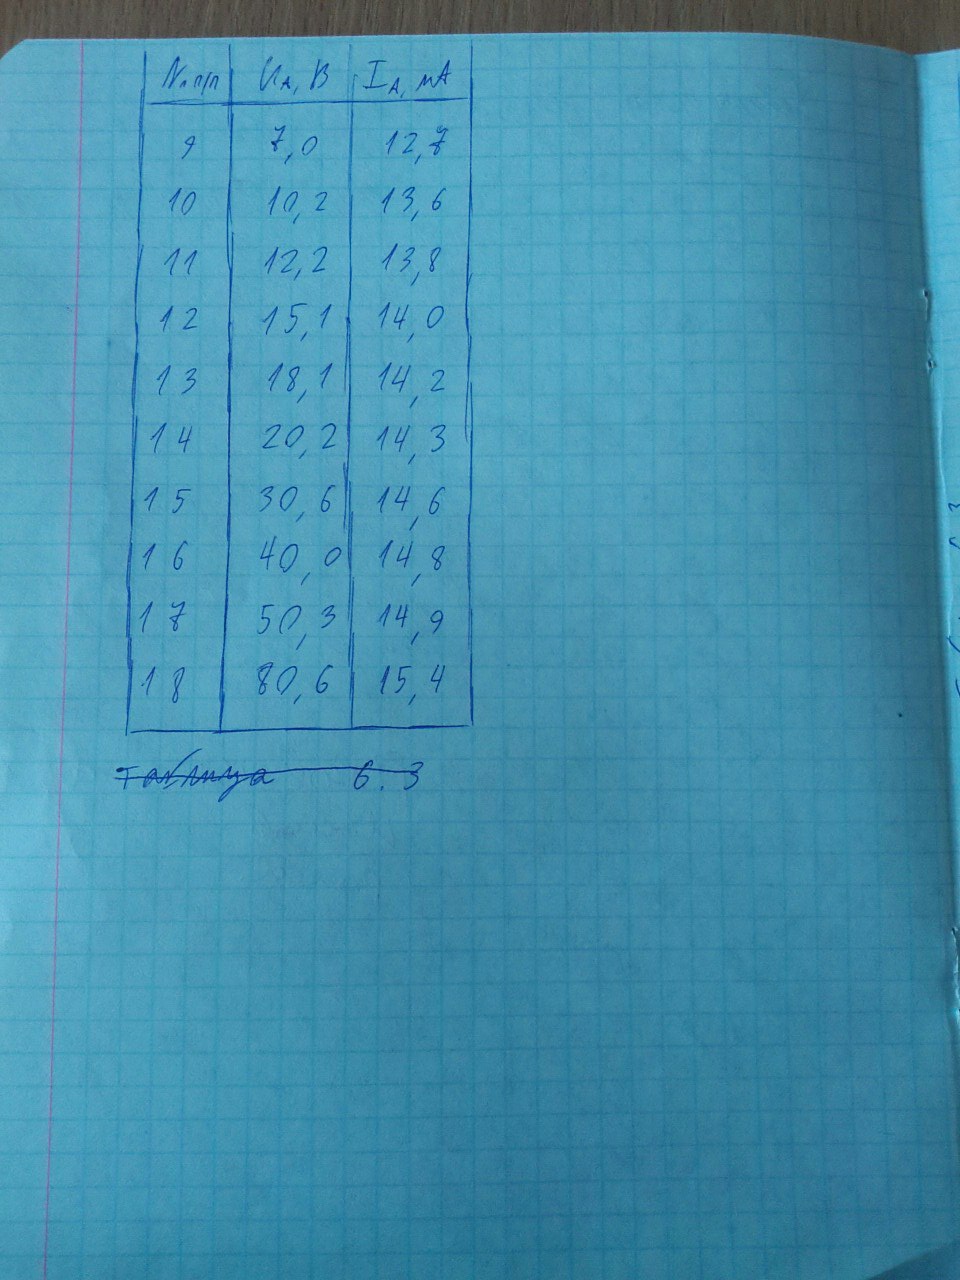 N п/п U_A, В I_A, мА
9 7,0 12,7
10 10,2 13,6
11 12,2 13,8
12 15,1 14,0
13 18,1 14,2
14 20,2 14,3
15 30,6 14,6
16 40,0 14,8
17 50,3 14,9
18 80,6 15,4
Таблица 6.3